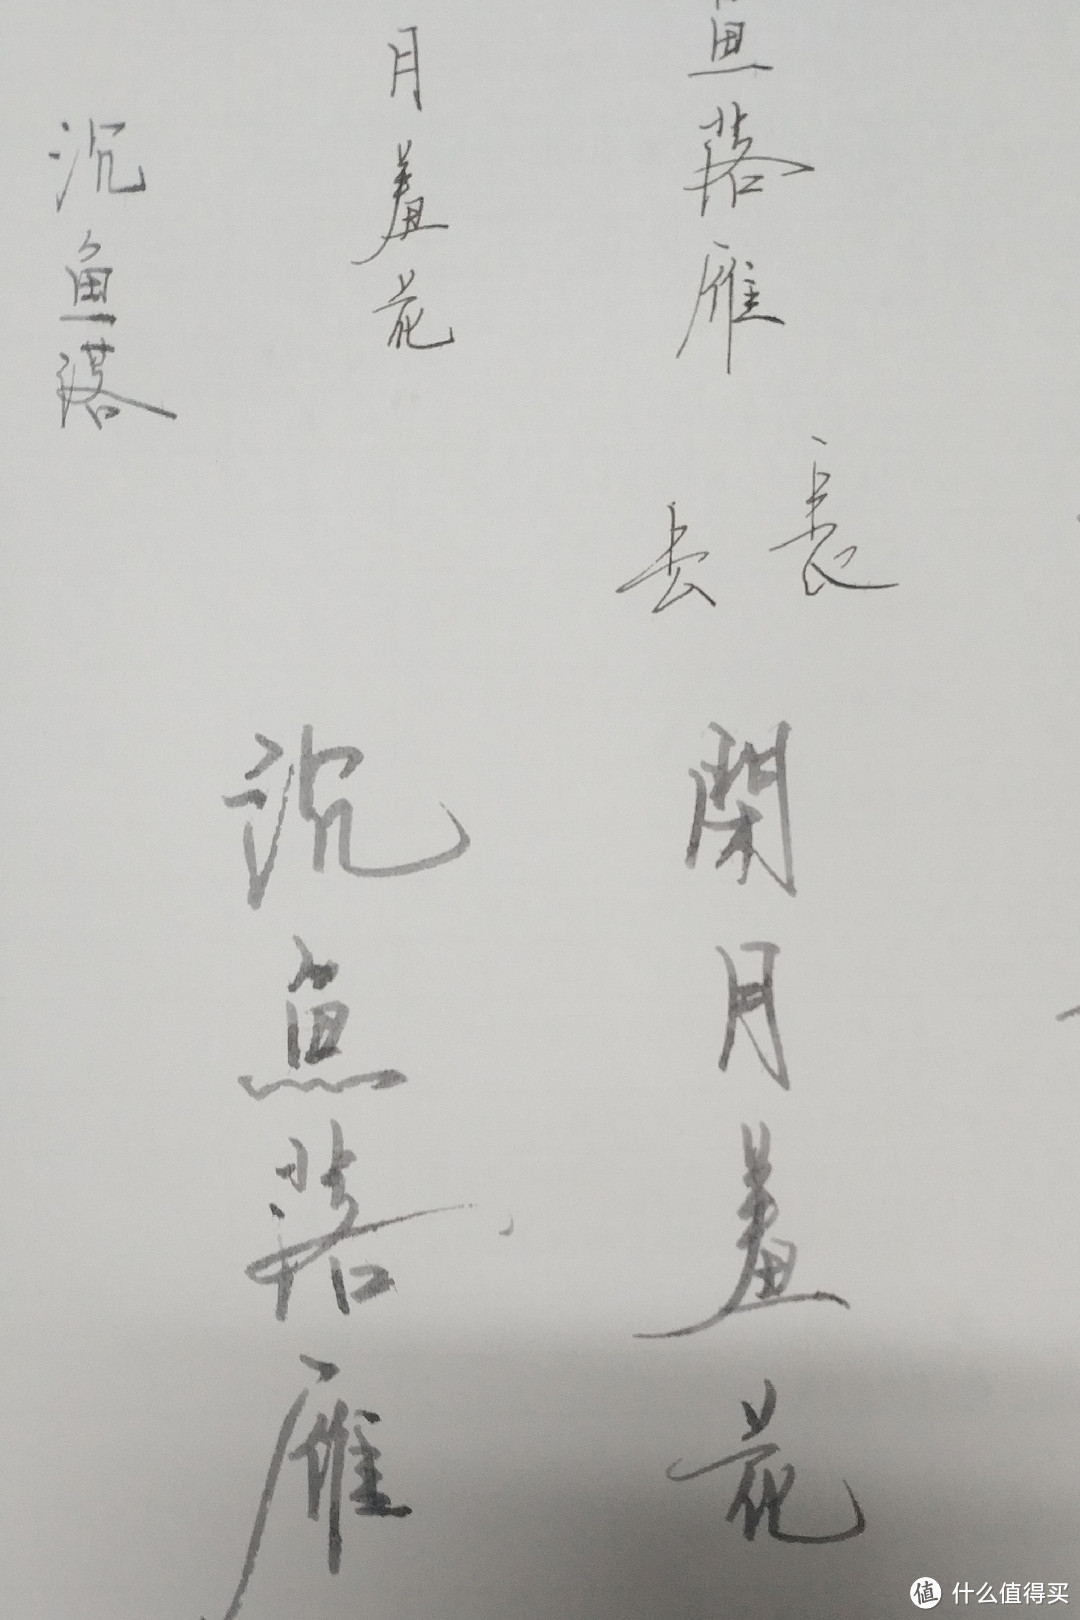 沉鱼落
月羞花
鱼落雁
去
長
沉鱼落雁
閉月羞花
值 什么值得买